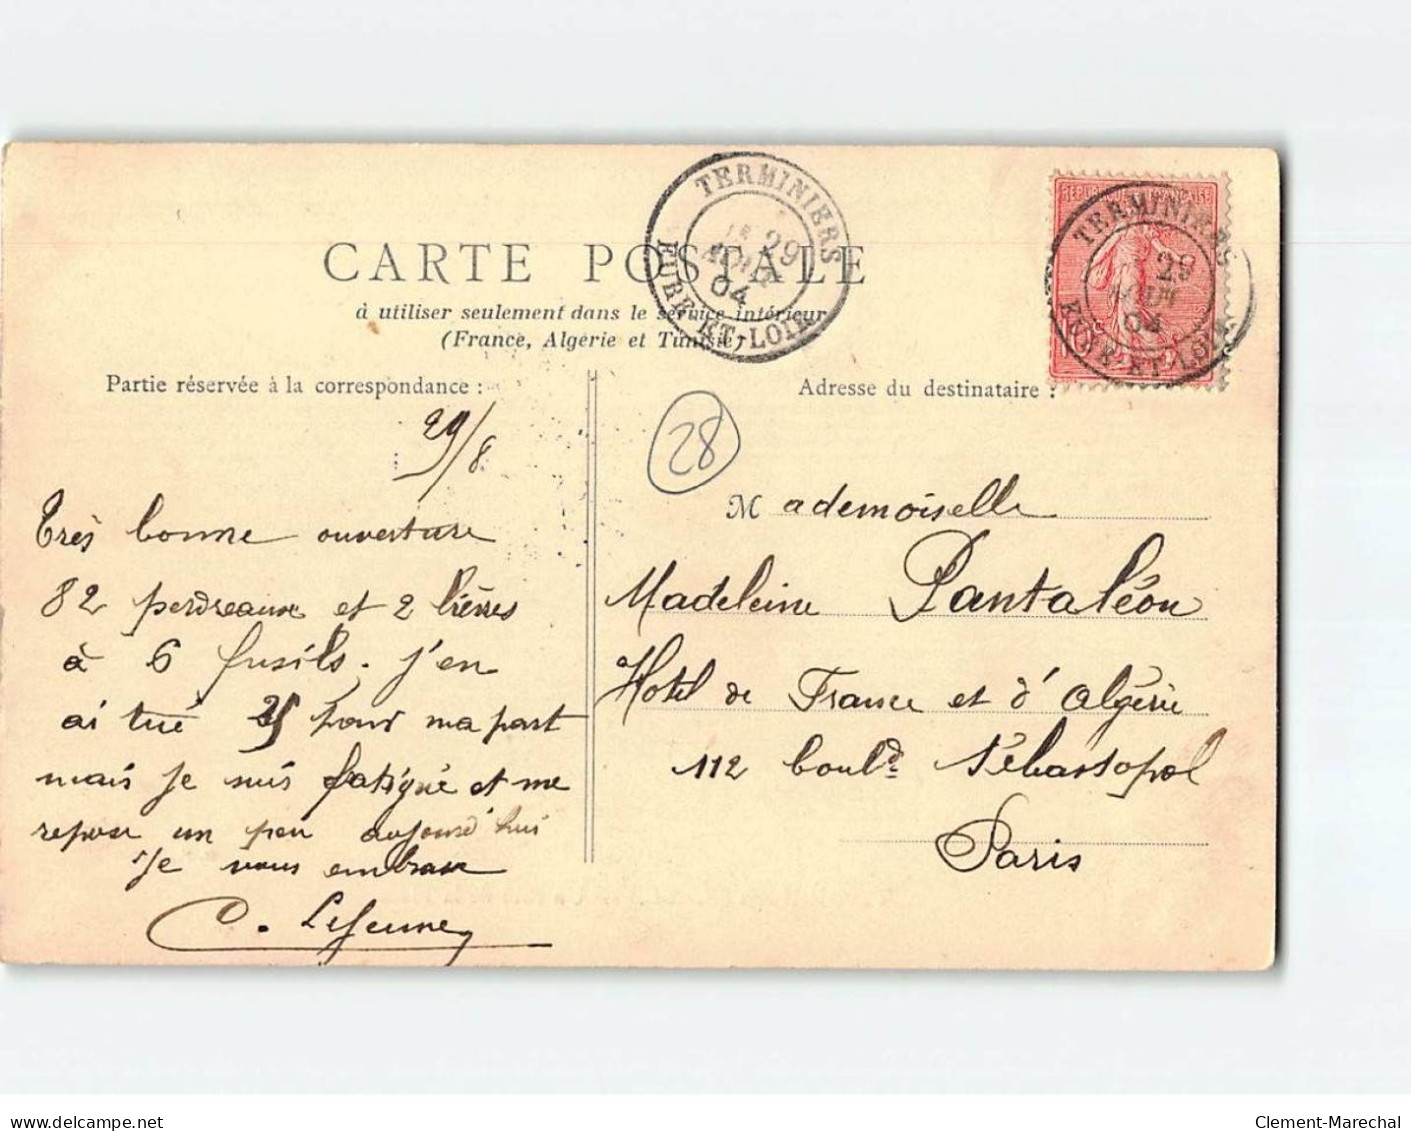 TERMINIERS
29
AOUT
04
EURE-ET-LOIR
REPUBLIQUE FRANÇAISE
TERMINIERS
29
AOUT
04
EURE-ET-LOIR
CARTE POSTALE
à utiliser seulement dans le service intérieur
(France, Algérie et Tunisie)
Partie réservée à la correspondance :
29/8
Très bonne ouverture
82 perdreaux et 2 lièvres
à 6 fusils. j'en
ai tué 25 pour ma part
mais je suis fatigué et me
repose un peu aujourd'hui
Je vous embrasse
C. Lejeune
Adresse du destinataire :
28
Mademoiselle
Madeleine Pantaléon
Hotel de France et d'Algérie
112 boulᵈ Sébastopol
Paris
delcampe.net
Clement-Marechal